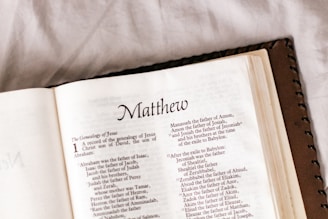 Matthew
The Genealogy of Jesus
1 A record of the genealogy of Jesus
Christ son of David, the son of
Abraham:
Abraham was the father of Isaac,
Isaac the father of Jacob,
Jacob the father of Judah
and his brothers,
Judah the father of Perez
and Zerah,
whose mother was Tamar,
Perez the father of Hezron,
Hezron the father of Ram,
Ram the father of Amminadab,
Amminadab the father
Manasseh the father of Amon,
Amon the father of Josiah,
and Josiah the father of Jeconiah
and his brothers at the time
of the exile to Babylon.
After the exile to Babylon:
Jeconiah was the father
of Shealtiel,
Shealtiel the father
of Zerubbabel,
Zerubbabel the father of Abiud,
Abiud the father of Eliakim,
Eliakim the father of Azor,
Azor the father of Zadok,
Zadok the father of Akim,
Akim the father of Eliud,
Eliud the father of Eleazar,
Eleazar the father of Matthan,
Matthan the father of Jacob,